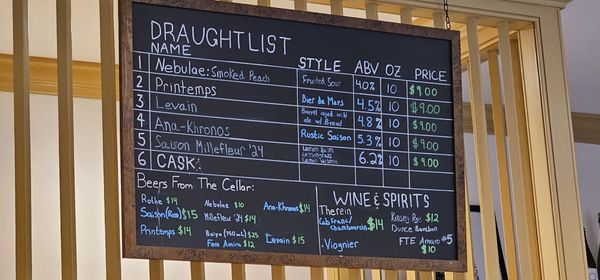 DRAUGHT LIST
NAME STYLE ABV OZ PRICE
1 Nebulae: Smoked Peach Fruited Sour 4.0% 10 $9.00
2 Printemps Bier de Mars 4.5% 10 $9.00
3 Levain Barrel aged wit ale w/ Bread 4.8% 10 $9.00
4 Ana-Khronos Rustic Saison 5.3% 10 $9.00
5 Saison Millefleur '24 Lemon Balm Lemongrass Lemon Verbena 6.2% 10 $9.00
6 CASK:
Beers From The Cellar:
Rothe $14 Nebulae $10 Ana-Khronos $14
Saison (Rose) $15 Millefleur '24 $14
Printemps $14 $25
Amira $12 Levain $15
WINE & SPIRITS
Therein
Cab Franc/
chambourcin $14
Viognier
Kinsey Rye $12
Bourbon
FTE Amaro #5
$10